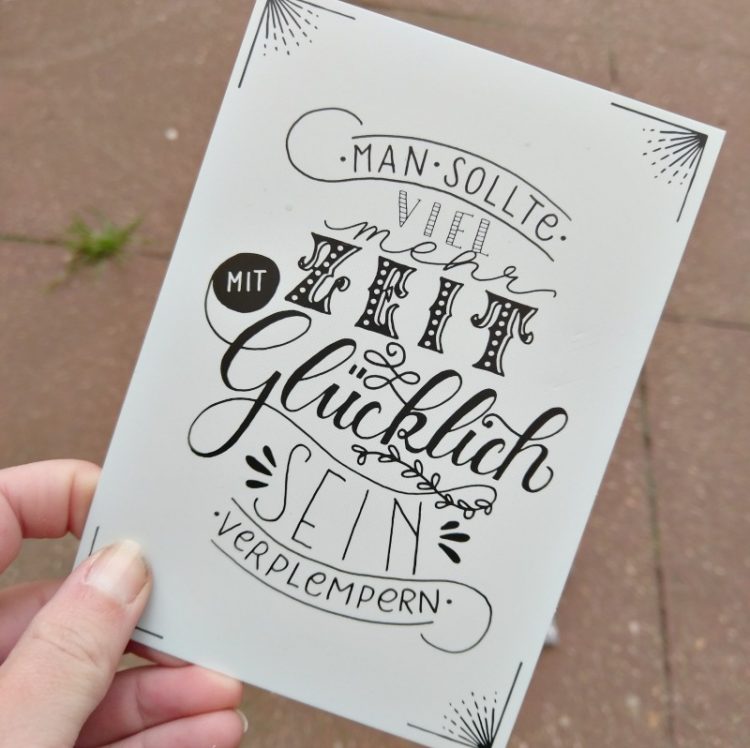 ·MAN·SOLLTE·
VIEL
mehr
ZEIT
MIT
Glücklich
SEIN
·VERPLEMPERN·